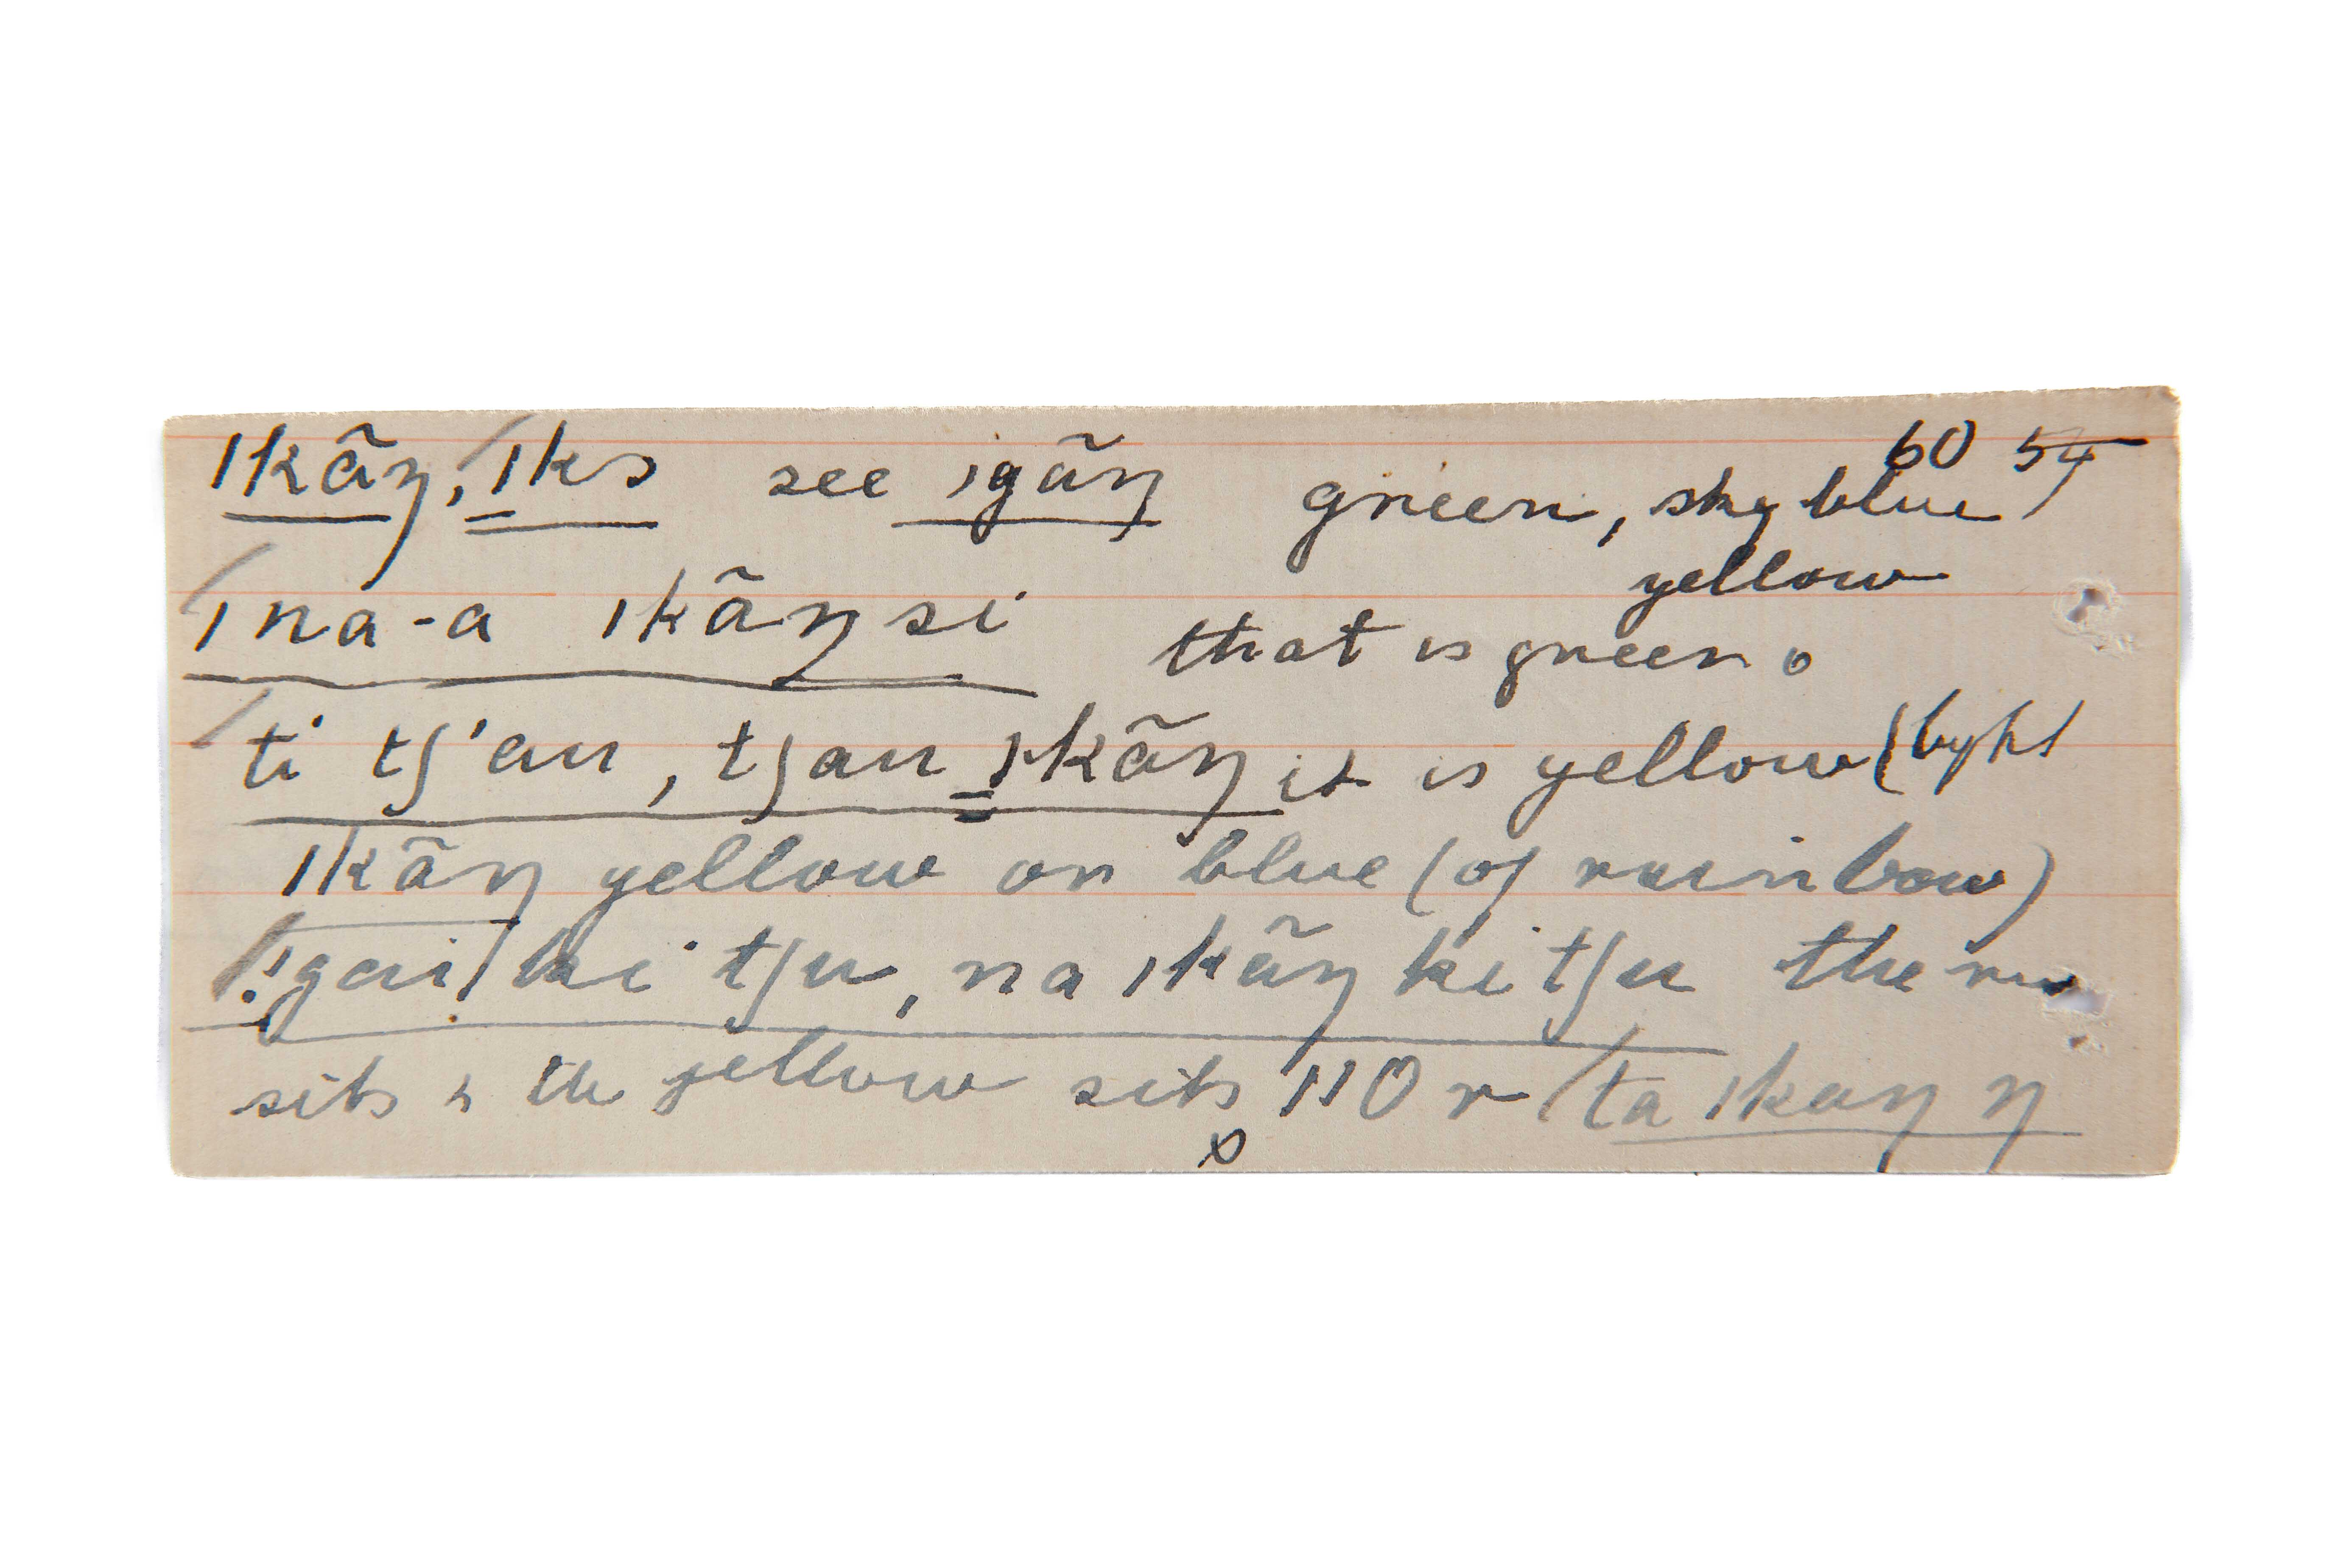 60 54
ıkãŋ, ıks see ıgãŋ green, sky blue
yellow
ı na-a ıkãŋsi that is green.
ti tʃ'an, tʃan ıkãŋ it is yellow (light
ıkãŋ yellow or blue (of rainbow)
kitʃu, na ıkãŋ kitʃu the
sits & the yellow sits 110 r ta ıkaŋ ŋ
x